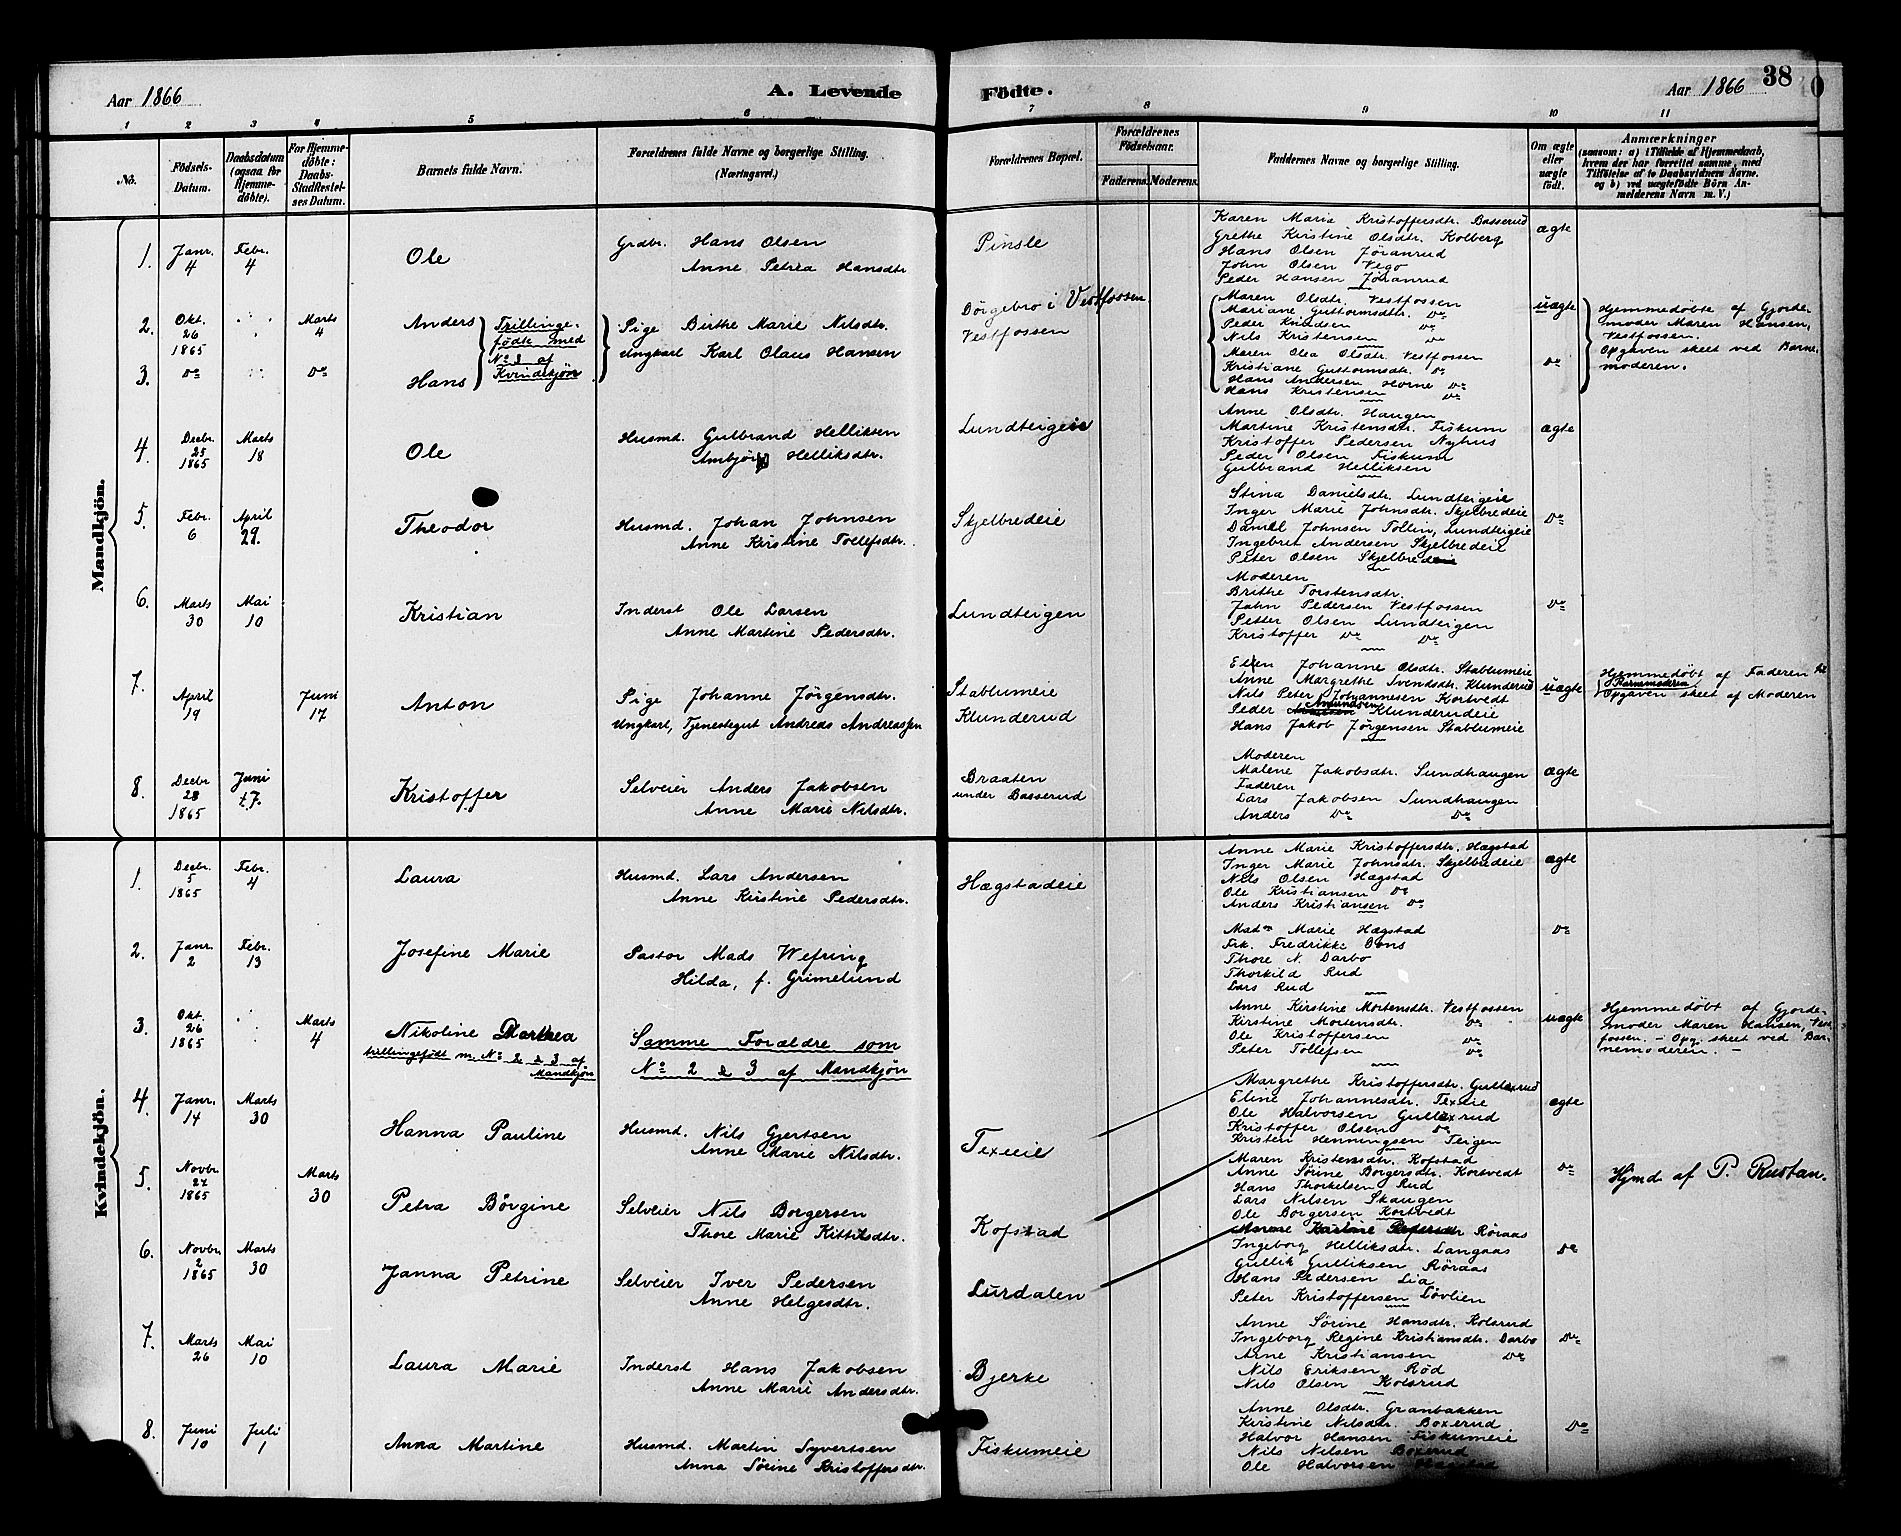 Aar 1866
A. Levende
Födte.
Aar 1866
38
1 2 3 4 5 6 7 8 9 10 11
No.
Födsels-
Datum.
Daabsdatum
(ogsaa for
Hjemme-
döbte).
For Hjemme-
döbte:
Daabs-
Stadfæstel-
ses Datum.
Barnets fulde Navn.
Forældrenes fulde Navne og borgerlige Stilling.
(Næringsvei.)
Forældrenes Bopæl.
Forældrenes
Födselsaar.
Faderens. Moderens.
Faddernes Navne og borgerlige Stilling.
Om ægte
eller
uægte
født.
Anmærkninger
(saasom: a) i Tilfælde af Hjemmedaab,
hvem der har forrettet samme, med
Tilföielse af to Daabsvidners Navne.
og b) ved uægtefödte Börn An-
melderens Navn m. V.)
Mandkjön.
1.
Janr.
4
Febr.
4
Ole
Grdbr. Hans Olsen
Anne Petrea Hansdtr.
Pinsle
Karen Marie Kristoffersdtr. Basserud
Grethe Kristine Olsdtr. Kolberg
Hans Olsen Jøranrud
John Olsen Vego
Peder Hansen Jøranrud
ægte
2.
Okt.
26
1865
Marts
4
Anders
3.
Do
Do
Hans
Trillinge-
fødte med
No 3 af
Kvindekjøn
Pige Birthe Marie Nilsdtr.
Ungkarl Karl Olaus Hansen
Dörgebro i Vestfossen
Vestfossen
Maren Olsdtr. Vestfossen
Mariane Guttormsdtr. Do
Peder Knudsen Do
Nils Kristensen Do
Maren Olea Olsdtr. Vestfossen
Kristiane Guttormsdtr. Do
Hans Andersen Horne Do
Hans Kristensen Do
uægte
Do
Hjemmedøbte af Gjorde-
moder Maren Hansen,
Vestfossen.
Opgaven skeet ved Barne-
moderen.
4.
Decbr.
25
1865
Marts
18
Ole
Husmd. Gulbrand Helliksen
Ambjør Helliksdtr.
Lundteigen
Anne Olsdtr. Haugen
Martine Kristensdtr. Fiskum
Kristoffer Pedersen Nyhus
Peder Olsen Fiskum
Gulbrand Helliksen
ægte
5.
Febr.
6
April
29.
Theodor
Husmd. Johan Johnsen
Anne Kirstine Tollefsdtr.
Skjelbredeie
Stina Danielsdtr. Lundteigeie
Inger Marie Johnsdtr. Skjelbredeie
Daniel Johnsen Tollin, Lundteigeie
Ingebret Andersen Skjelbredeie
Peter Olsen Skjelbredeie
Do
6.
Marts
30
Mai
10
Kristian
Inderst Ole Larsen
Anne Martine Pedersdtr.
Lundteigen
Moderen
Brithe Torstensdtr.
John Pedersen Vestfossen
Petter Olsen Lundteigen
Kristoffer Do Do
Do
7.
April
19
Juni
17
Anton
Pige Johanne Jørgensdtr.
Ungkarl, Tjenestegut Andreas Andreassen
Stablumeie
Klunderud
Ellen Johanne Olsdtr. Stablumeie
Anne Margrethe Svendsdtr. Klunderud
Nils Peter Johannesen Kortvedt
Peder Amundsen Klunderudeie
Hans Jakob Jørgensen Stablumeie
uægte
Hjemmedøbt af Faderen til
Barnemoderen
Opgaven skeet af Moderen
8.
Decbr
28
1865
Juni
17.
Kristoffer
Selveier Anders Jakobsen
Anne Marie Nilsdtr.
Braaten
under Basserud
Moderen
Malene Jakobsdtr. Sundhaugen
Faderen
Lars Jakobsen Sundhaugen
Anders Do Do
ægte
Kvindekjön.
1.
Decbr.
5
1865
Febr.
4
Laura
Husmd. Lars Andersen
Anne Kirstine Pedersdtr.
Hægstadeie
Anne Marie Kristoffersdtr. Hægstad
Inger Marie Johnsdtr. Skjelbredeie
Nils Olsen Hægstad
Ole Kristiansen Do
Anders Kristiansen Do
ægte
2.
Janr.
2
Febr.
13
Josefine Marie
Pastor Mads Wefring
Hilda, f. Grimelund
Mad Marie Hægstad
Frk. Fredrikke Dons
Thore N. Darbo
Thorkild Rud
Lars Rud
Do
3.
Okt.
26
1865
Marts
4
Nikoline Dorthea
trillingefødt m. No 2 & 3 af
Mandkjøn
Samme Forældre som
No 2 & 3 af Mandkjøn
Anne Kirstine Mortensdtr. Vestfossen
Kirstine Mortensdtr. Do
Ole Kristoffersen Do
Peter Tollefsen Do
uægte
Hjemmedøbt af Gjorde-
moder Maren Hansen, Vest-
fossen. – Opg. skeet ved Bar-
nemoderen. –
4.
Janr.
14
Marts
30
Hanna Pauline
Husmd. Nils Gjertsen
Anne Marie Nilsdtr.
Texeeie
Margrethe Kristoffersdtr. Gullexrud
Eline Johannesdtr. Texeie
Ole Halvorsen Gullexrud
Kristoffer Olsen Do
Kristen Henningsen Teigen
ægte
5.
Novbr.
27
1865
Marts
30
Petra Börgine
Selveier Nils Borgersen
Thore Marie Kittilsdtr.
Kofstad
Maren Kristensdtr. Kofstad
Anne Sörine Borgersdtr. Kortvedt
Hans Thorkelsen Rud
Lars Nilsen Skaugen
Ole Borgersen Kortvedt
Do
Hjmd. af P. Rustan.
6.
Novbr.
2
1865
Marts
30
Janna Petrine
Selveier Iver Pedersen
Anne Helgesdtr.
Lurdalen
Røraas
Ingeborg Helliksdtr. Langaas
Gullik Gulliksen Røraas
Hans Pedersen Lia
Peter Kristoffersen Løvlien
Do
7.
Marts
26
Mai
10
Laura Marie
Inderst Hans Jakobsen
Anne Marie Andersdtr.
Bjerke
Anne Sörine Hansdtr. Kolsrud
Ingeborg Regine Kristiansdtr. Darbo
Arne Kristiansen Do
Nils Eriksen Rød
Nils Olsen Kolsrud
Do
8.
Juni
10
Juli
1
Anna Martine
Husmd. Martin Syvertsen
Anna Sörine Kristoffersdtr.
Fiskumeie
Anne Olsdtr. Granbakken
Kirstine Nilsdtr. Boxerud
Halvor Hansen Fiskumeie
Nils Nilsen Boxerud
Ole Halvorsen
Do